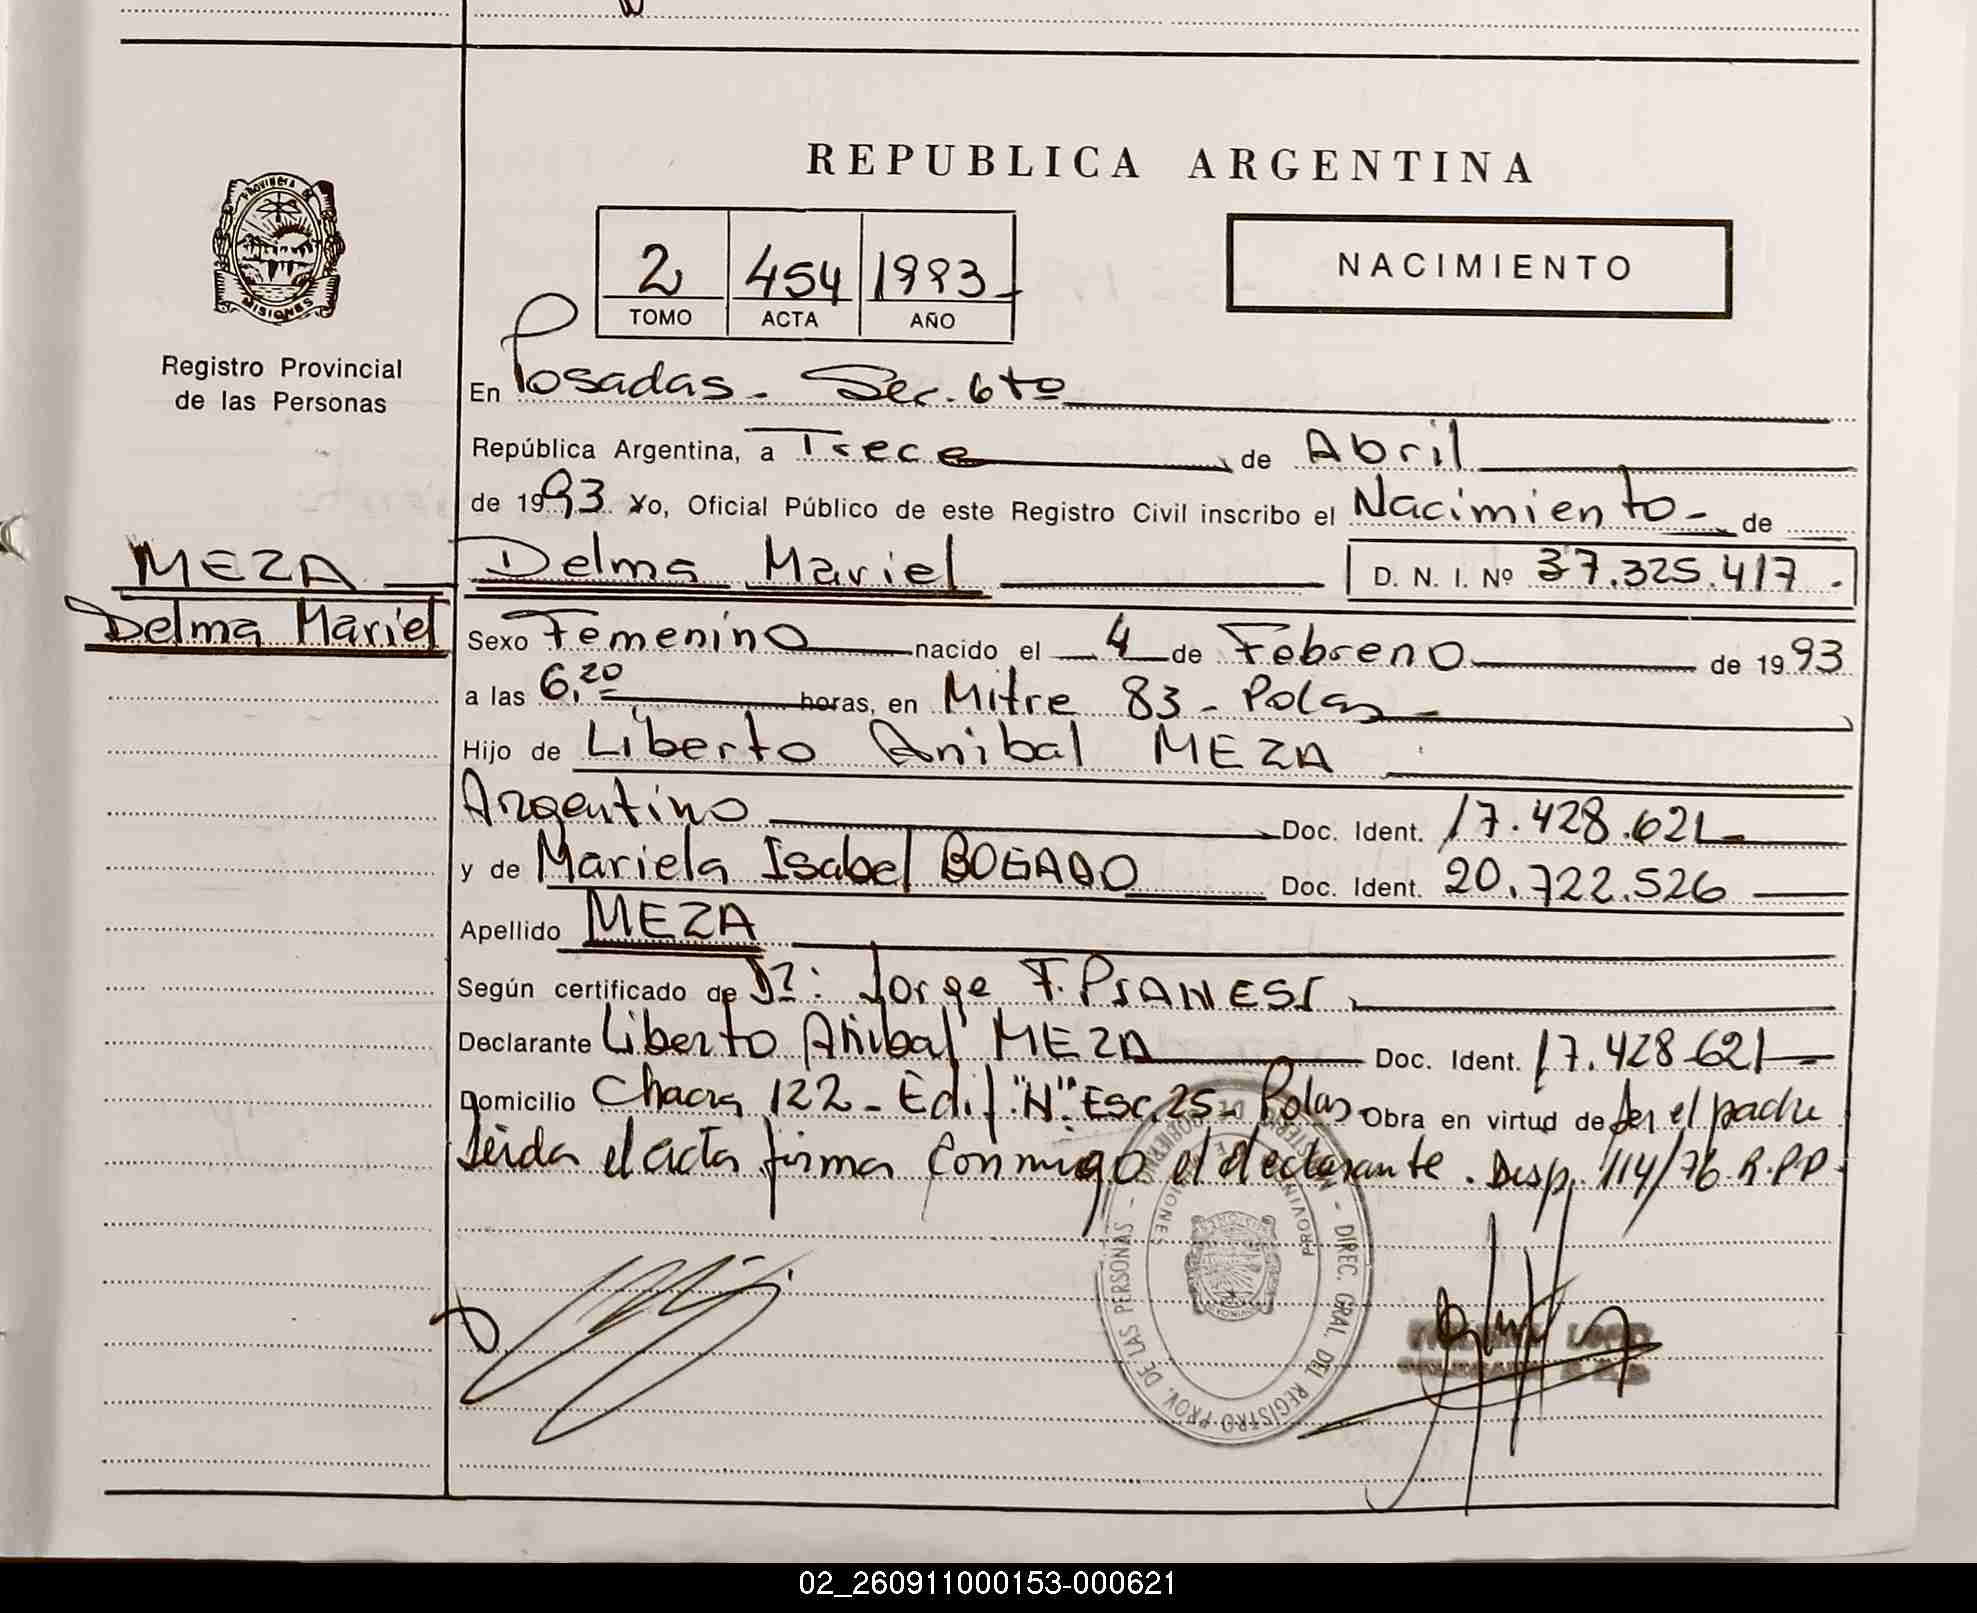 REPUBLICA ARGENTINA
PROVINCIA DE
MISIONES
Registro Provincial
de las Personas
2 454 1993
TOMO ACTA AÑO
NACIMIENTO
En Posadas - Sec. 6to
República Argentina, a Trece de Abril
de 1993 Yo, Oficial Público de este Registro Civil inscribo el Nacimiento - de
MEZA
Delma Mariel
Delma Mariel D. N. I. Nº 37.325.417 -
Sexo Femenino nacido el 4 de Febrero de 1993
a las 6,20 horas, en Mitre 83 - Pdas -
Hijo de Liberto Anibal MEZA
Argentino Doc. Ident. 17.428.621
y de Mariela Isabel BOGADO Doc. Ident. 20.722.526
Apellido MEZA
Según certificado de Dr: Jorge F. PIANESI
Declarante Liberto Anibal MEZA Doc. Ident. 17.428.621
Domicilio Chacra 122 - Edif. "N" Esc. 25 - Pdas Obra en virtud de ser el padre
Leída el acta firma conmigo el declarante. Disp. 114/76 R.P.P.
DIREC. GRAL. DEL REGISTRO PROV. DE LAS PERSONAS -
PROVINCIA DE MISIONES
02_260911000153-000621